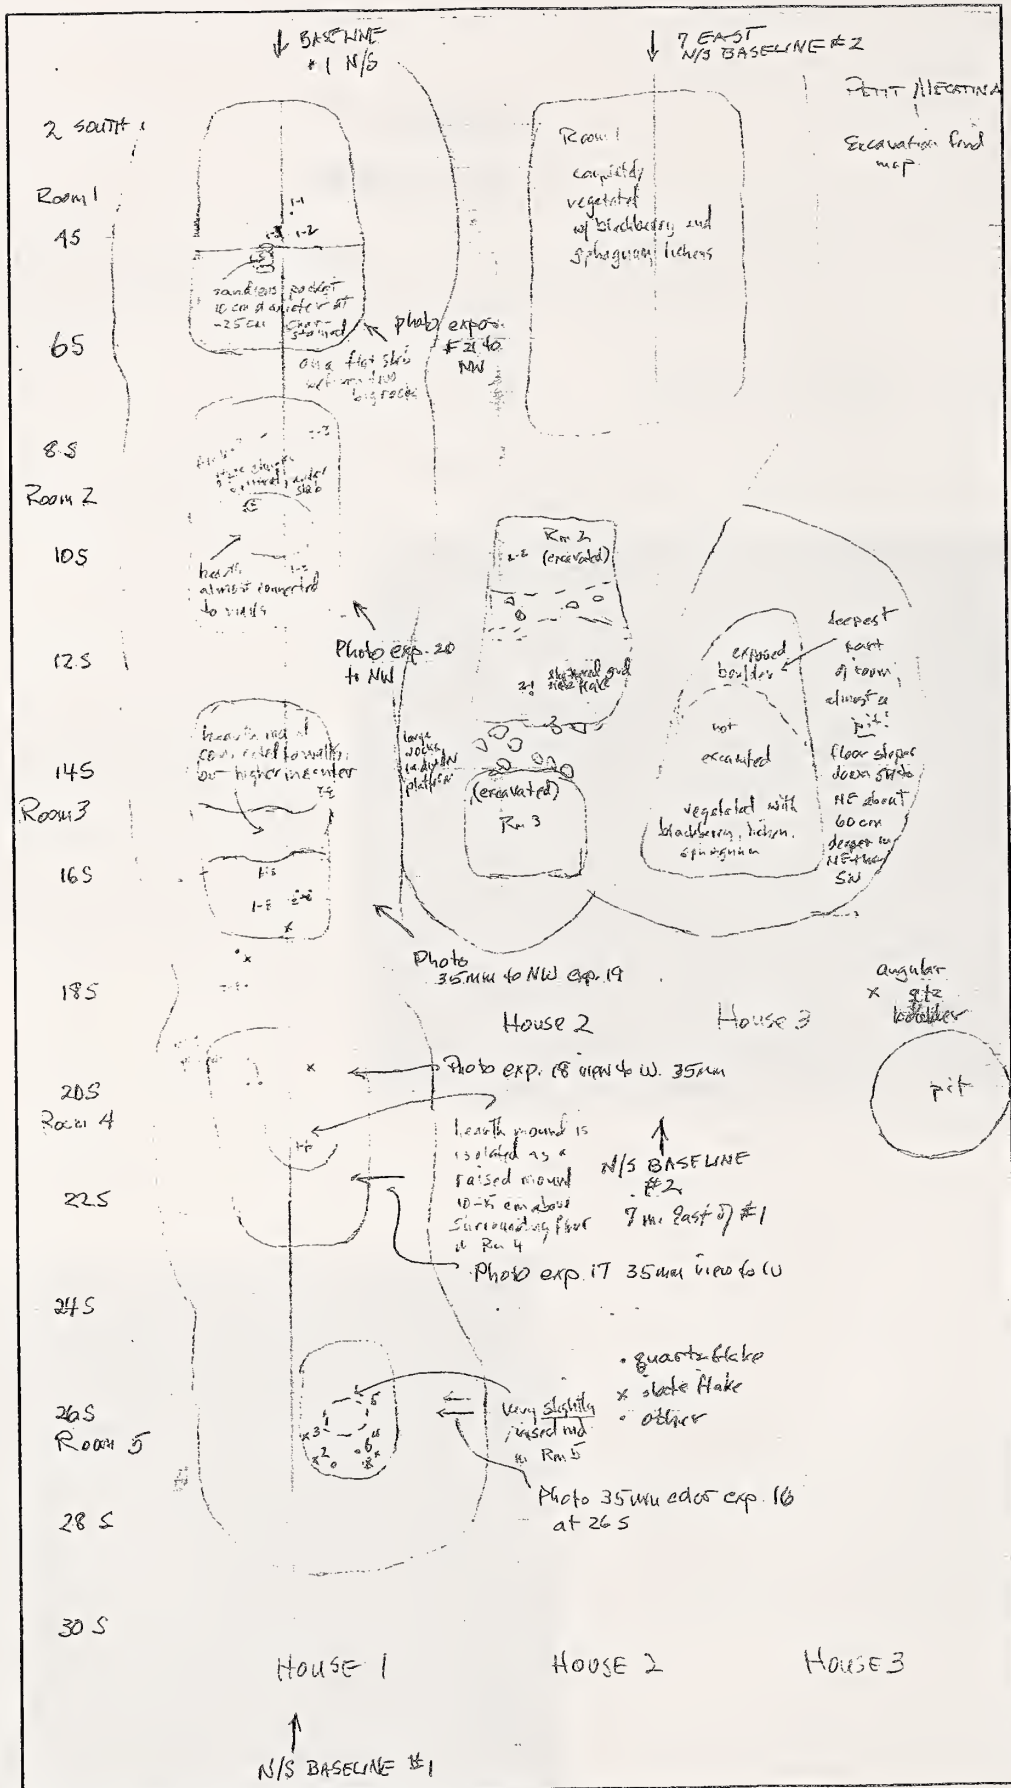 BASELINE
#1 N/S
7 EAST
N/S BASELINE #2
PETIT MECATINA
Excavation find
map
2 SOUTH
Room 1
4S
6S
8S
Room 2
10S
12S
14S
Room 3
16S
18S
20S
Room 4
22S
24S
26S
Room 5
28 S
30 S
1-1
1-2
pocket
10 cm diameter at
-25 cm
photo expos.
#21 to
NW
flat slab
big rocks
slab
hearth
almost connected
to walls
Photo exp. 20
to NW
hearth
to walls
but higher in center
Photo
35mm to NW exp. 19
Room 1
completely
vegetated
w/ blackberry and
sphagnum, lichens
Rm 2
2-2 (excavated)
2-1
flake
large
rocks
platform
(excavated)
Rm 3
exposed
boulder
not
excavated
vegetated with
blackberry, lichen,
sphagnum
deepest
part
of room,
almost a
pit!
floor slopes
down SW to
NE about
60 cm
deeper in
NE than
SW
House 2
House 3
angular
x qtz
pit
Photo exp. 18 view to W. 35mm
hearth mound is
isolated as a
raised mound
10-15 cm above
surrounding floor
in Rm 4
N/S BASELINE
#2
7 m. East of #1
Photo exp. 17 35mm view to W
• quartz flake
x slate flake
° other
very slightly
raised md
in Rm 5
Photo 35mm color exp. 16
at 26 S
HOUSE 1
HOUSE 2
HOUSE 3
N/S BASELINE #1